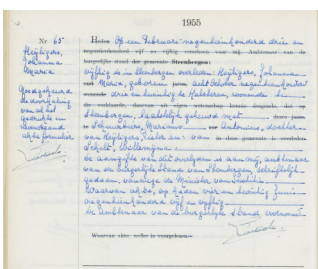 1955
Nr 65
Heijligers,
Johanna
Maria
Goedgekeurd
de doorhaling
van het
gedrukte in
bovenstaand
akte formulier
Heden Op een Februari negentienhonderd drie en
negentienhonderd vijf en vijftig verscheen voor mij, Ambtenaar van de
burgerlijke stand der gemeente Steenbergen:
vijftig is in Steenbergen overleden: Heijligers, Johanna
Maria, geboren op acht October negentienhonderd
drie en twintig te Halsteren, wonende
die verklaarde, daarvan uit eigen wetenschap kennis dragende, dat op
Steenbergen, laatstelijk gehuwd met
Schuurbiers, Marinus Antonius, dochter
van Heijligers, Pieter en van in deze gemeente is overleden
Schilt, Willemijna.
De aangifte van dit overlijden is aan mij, ambtenaar
van de burgerlijke stand van Steenbergen, schriftelijk
gedaan, vanwege de Minister van Justitie.
Waarvan akte, op heden vier en twintig Juni
negentienhonderd vijf en vijftig.
De ambtenaar van de burgerlijke stand voornoemd
Waarvan akte, welke is voorgelezen